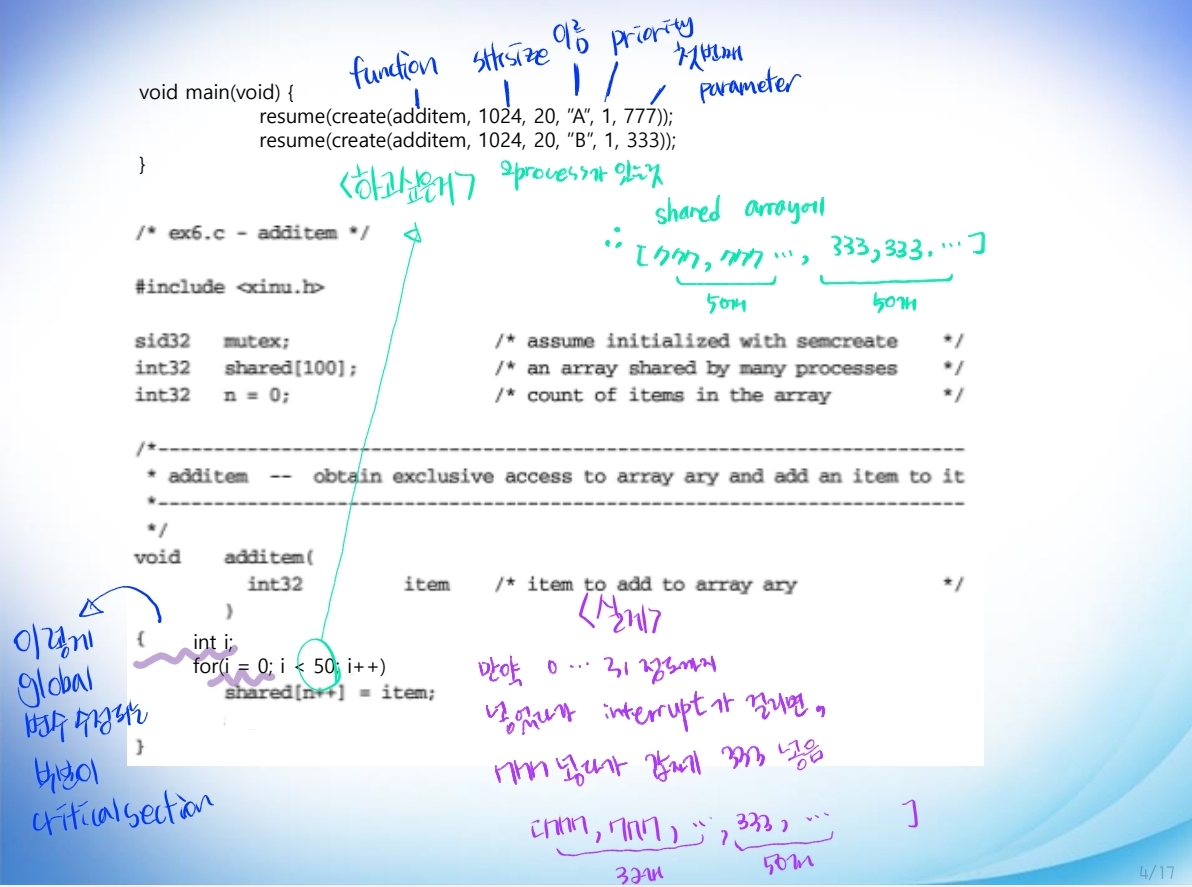 function stksize 이름 priority 첫번째 parameter
void main(void) {
resume(create(additem, 1024, 20, "A", 1, 777));
resume(create(additem, 1024, 20, "B", 1, 333));
}
<하고싶은거> 2process가 있는것
shared array에
/* ex6.c - additem */
∴ [777, 777 …, 333, 333, … ]
50개 50개
#include <xinu.h>
sid32 mutex; /* assume initialized with semcreate */
int32 shared[100]; /* an array shared by many processes */
int32 n = 0; /* count of items in the array */
/*------------------------------------------------------------------------
* additem -- obtain exclusive access to array ary and add an item to it
*------------------------------------------------------------------------
*/
void additem(
int32 item /* item to add to array ary */
)
<실제>
{ int i;
for(i = 0; i < 50; i++)
shared[n++] = item;
}
이렇게
global
변수 수정되는
부분이
critical section
만약 0 … 31 정도까지
넣었다가 interrupt가 걸리면,
777 넣다가 갑자기 333 넣음
[777, 777, …, 333, … ]
32개 50개
4/17